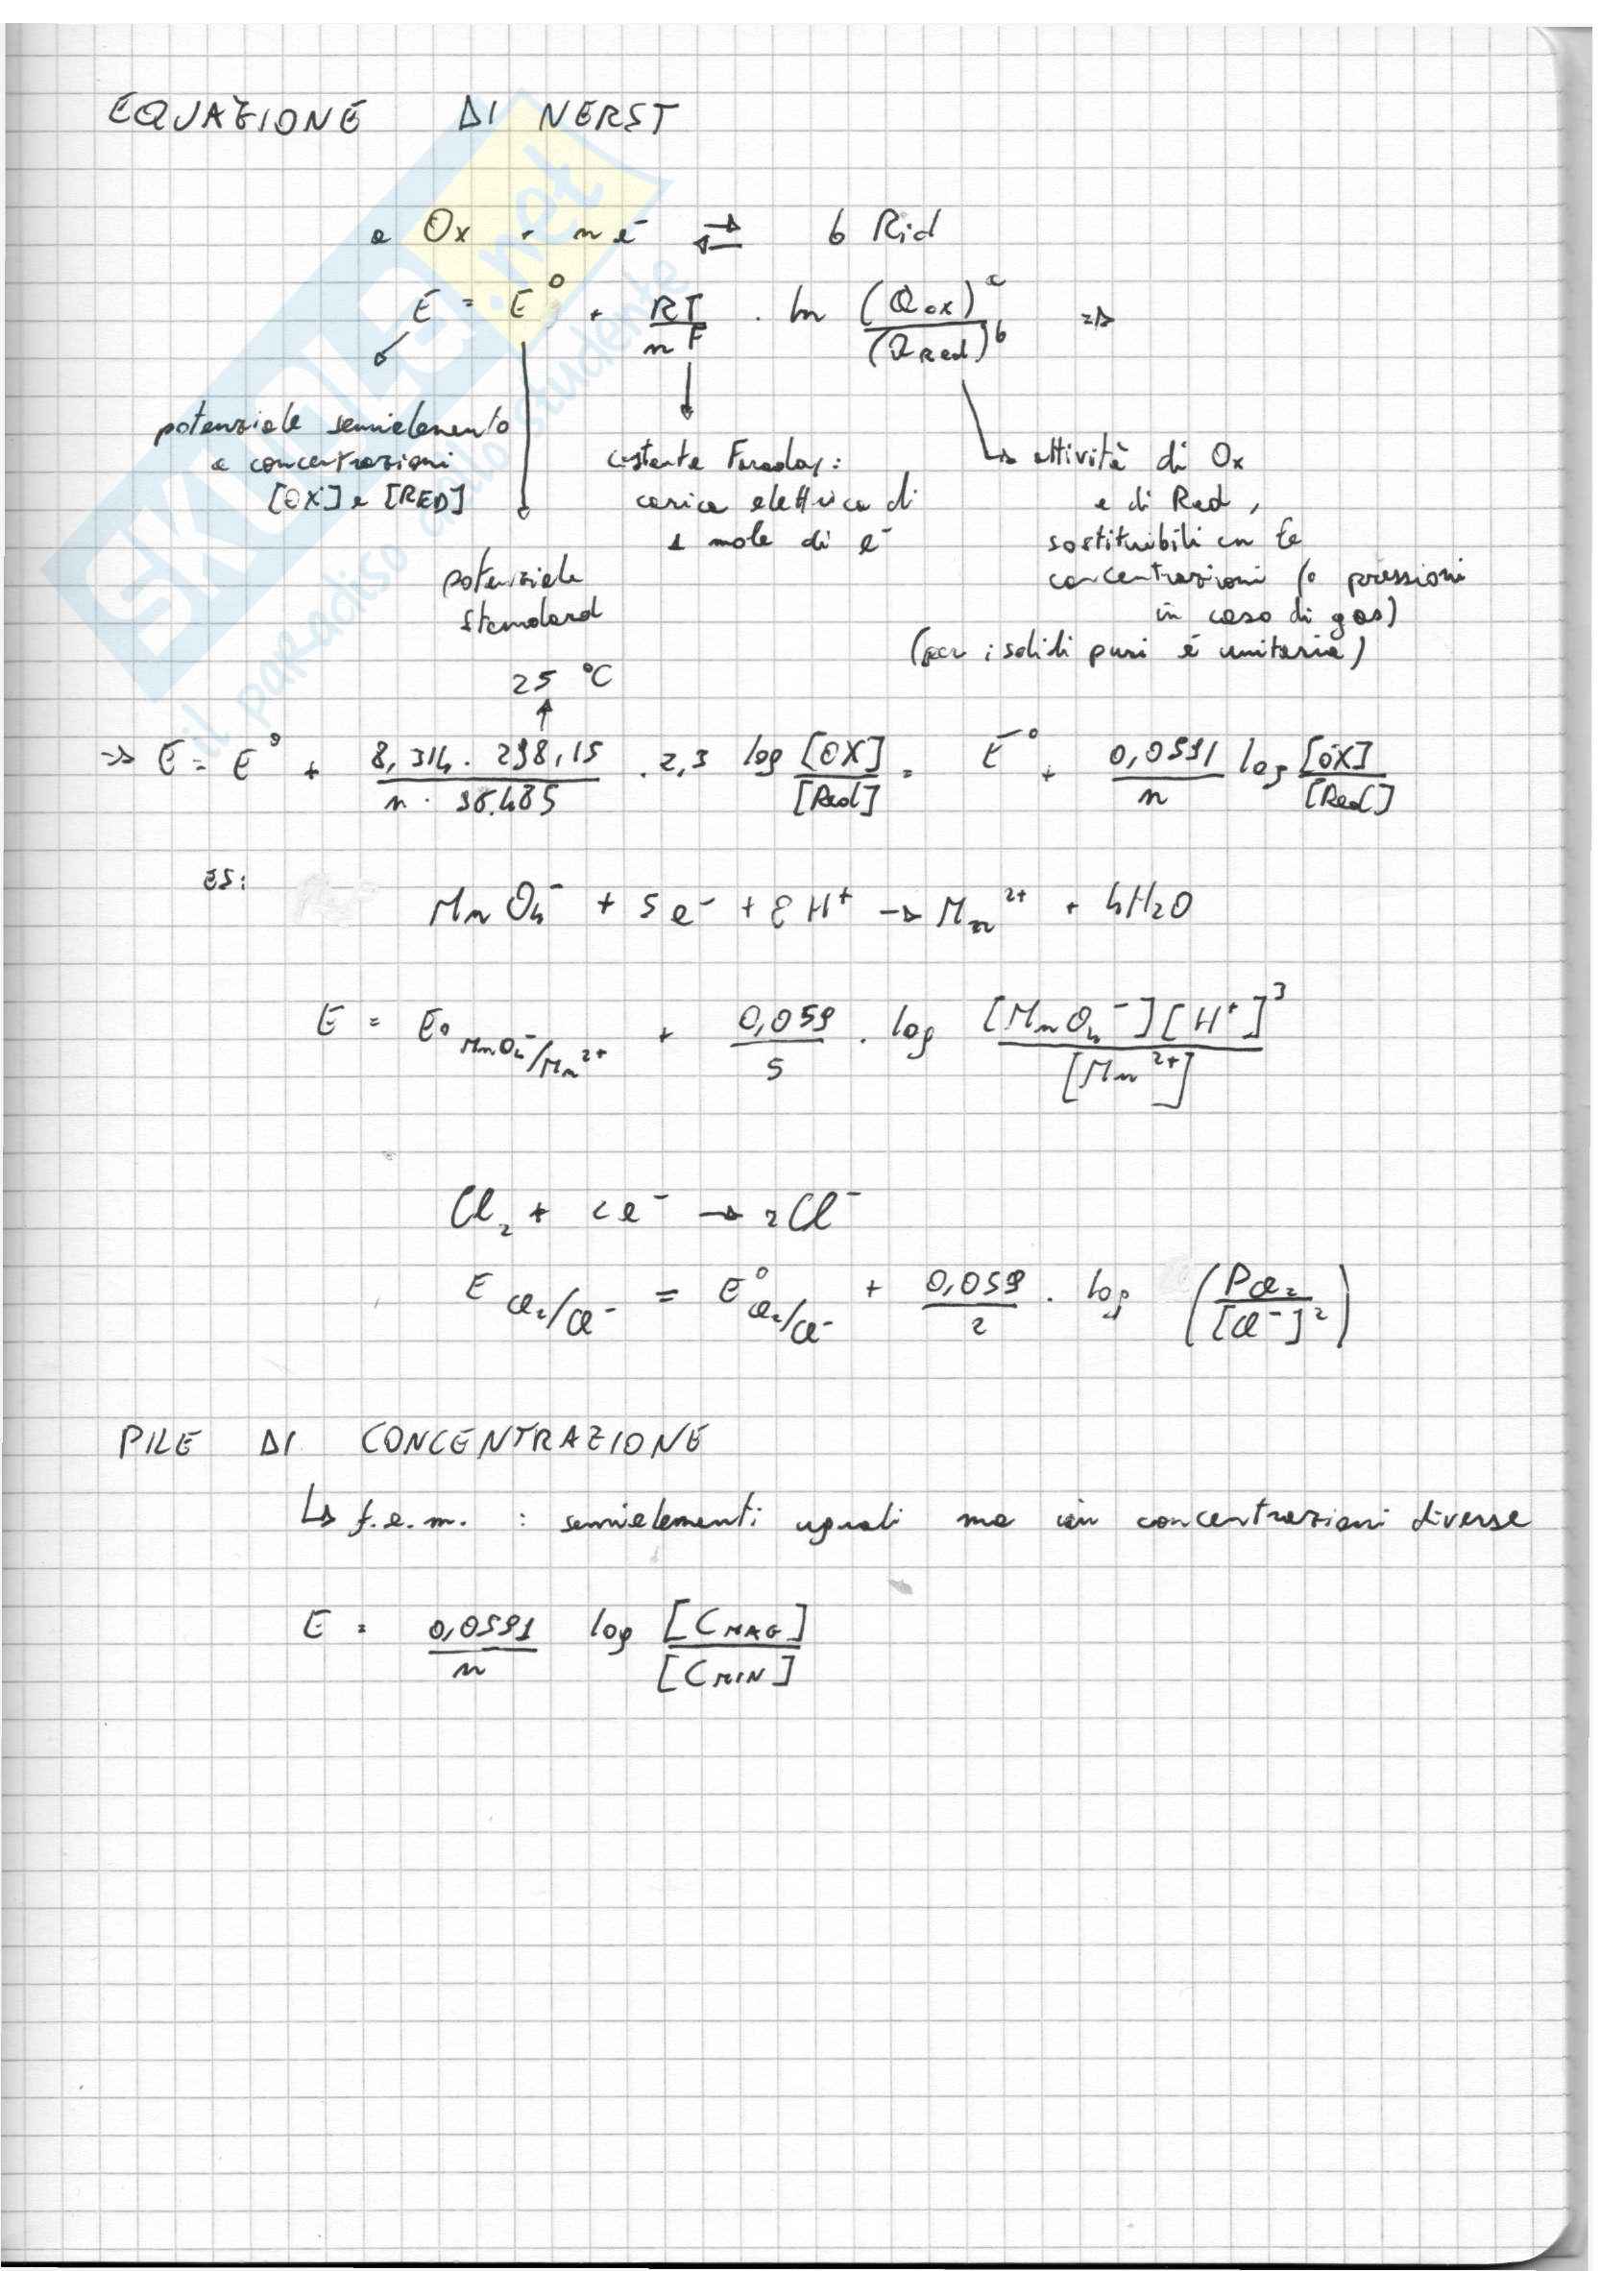 EQUAZIONE DI NERST
a Ox + n e⁻ ⇄ b Rid
E = E⁰ + RT/nF · ln (Qox)ᵃ/(QRed)ᵇ ⇒
potenziale semielemento
a concentrazioni
[OX] e [RED]
potenziale
standard
costante Faraday:
carica elettrica di
1 mole di e⁻
attività di Ox
e di Red,
sostituibili con le
concentrazioni (o pressioni
in caso di gas)
(per i solidi puri è unitaria)
25 °C
⇒ E = E⁰ + 8,314 · 298,15/n · 96.485 · 2,3 log [OX]/[Red] = E⁰ + 0,0591/n log [OX]/[Red]
ES:
MnO₄⁻ + 5e⁻ + 8H⁺ → Mn²⁺ + 4H₂O
E = E⁰ MnO₄⁻/Mn²⁺ + 0,059/5 · log [MnO₄⁻][H⁺]³/[Mn²⁺]
Cl₂ + 2e⁻ → 2Cl⁻
E Cl₂/Cl⁻ = E⁰ Cl₂/Cl⁻ + 0,059/2 · log (PCl₂/[Cl⁻]²)
PILE DI CONCENTRAZIONE
↳ f.e.m. : semielementi uguali ma in concentrazioni diverse
E = 0,0591/n log [CMAG]/[CMIN]
SKUOLA.net
il paradiso dello studente